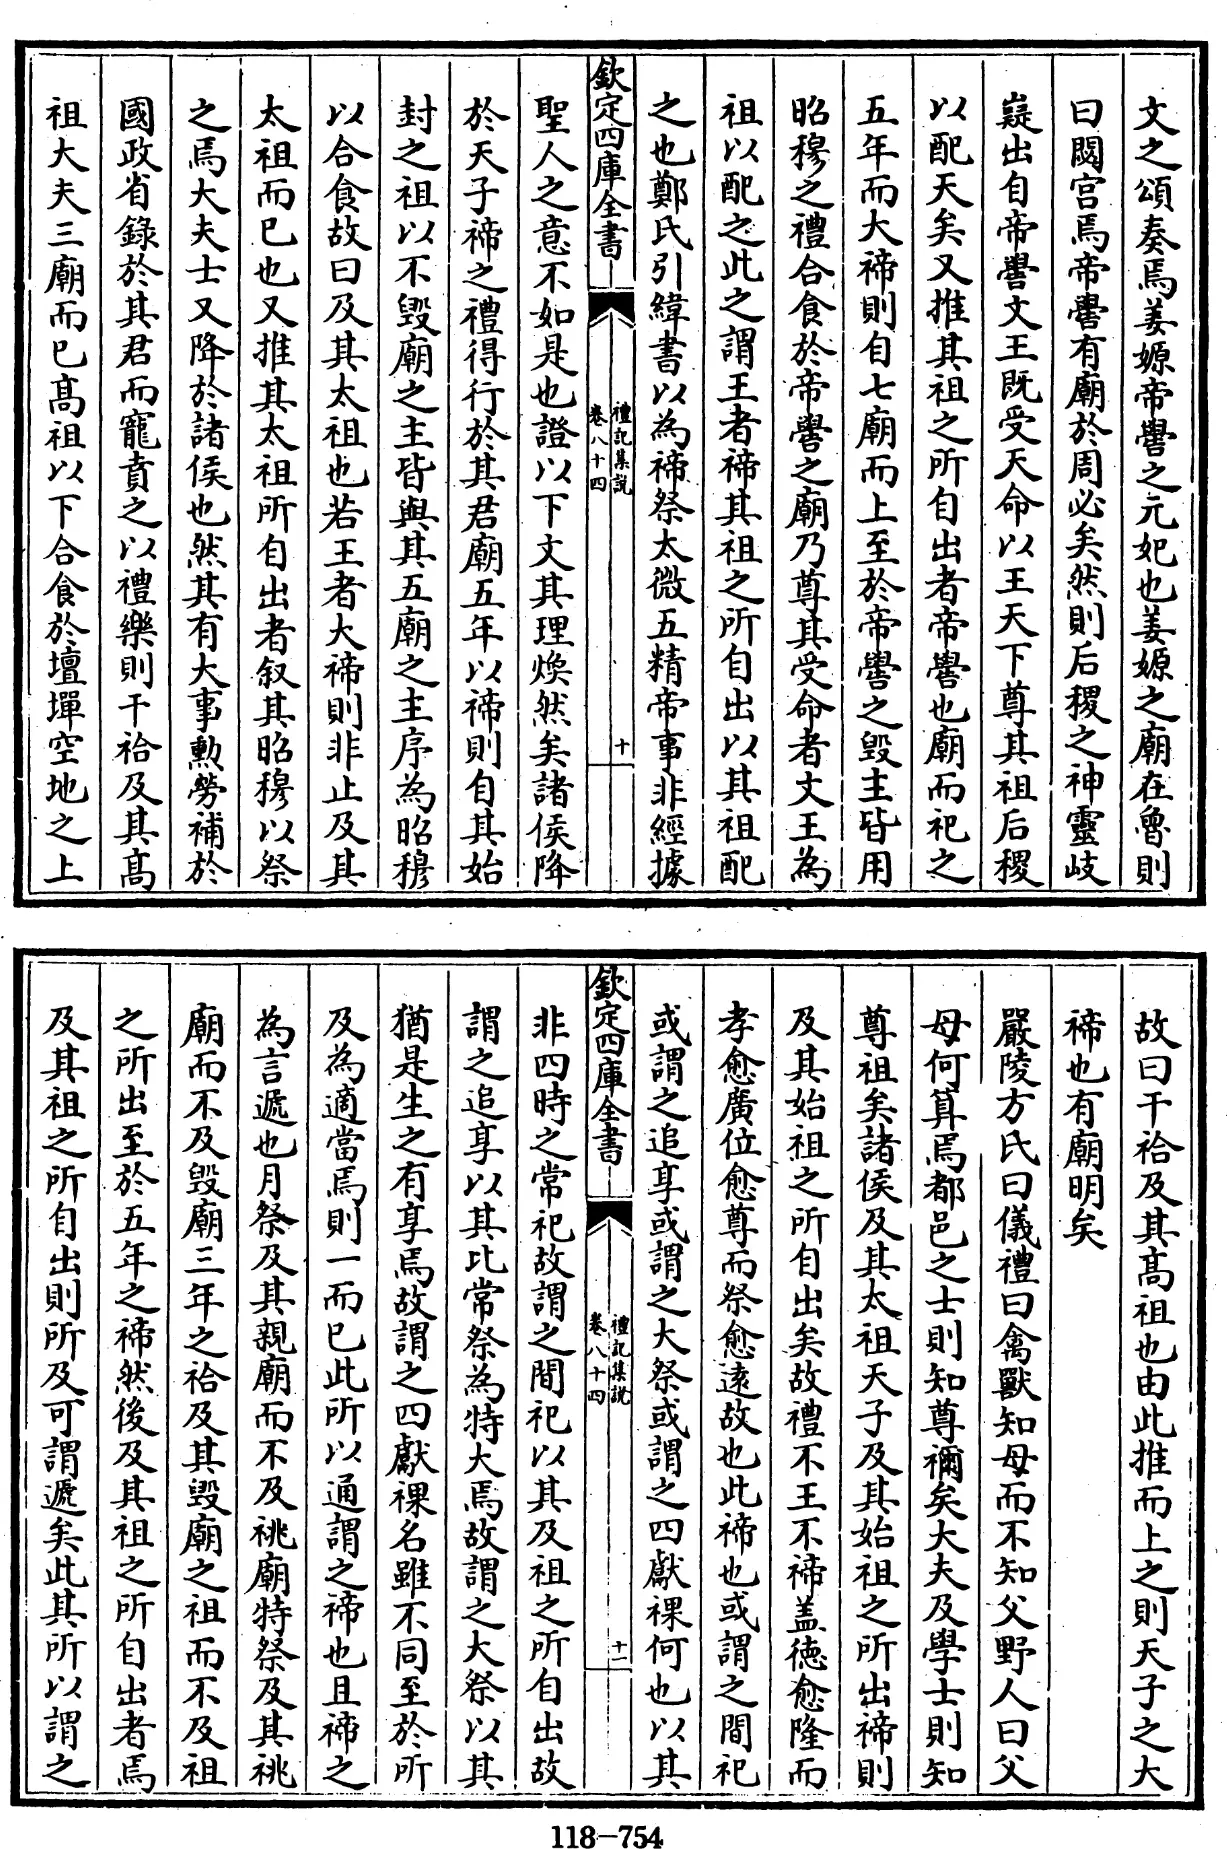 文之頌奏焉姜嫄帝嚳之元妃也姜嫄之廟在魯則
曰閟宫焉帝嚳有廟於周必矣然則后稷之神靈岐
嶷出自帝嚳文王既受天命以王天下尊其祖后稷
以配天矣又推其祖之所自出者帝嚳也廟而祀之
五年而大禘則自七廟而上至於帝嚳之毁主皆用
昭穆之禮合食於帝嚳之廟乃尊其受命者文王為
祖以配之此之謂王者禘其祖之所自出以其祖配
之也鄭氏引緯書以為禘祭太微五精帝事非經據
欽定四庫全書
禮記集說
卷八十四
十
聖人之意不如是也證以下文其理煥然矣諸侯降
於天子禘之禮得行於其君廟五年以禘則自其始
封之祖以不毁廟之主皆與其五廟之主序為昭穆
以合食故曰及其太祖也若王者大禘則非止及其
太祖而已也又推其太祖所自出者叙其昭穆以祭
之焉大夫士又降於諸侯也然其有大事勲勞補於
國政省錄於其君而寵賁之以禮樂則干祫及其髙
祖大夫三廟而已髙祖以下合食於壇墠空地之上
故曰干祫及其髙祖也由此推而上之則天子之大
禘也有廟明矣
嚴陵方氏曰儀禮曰禽獸知母而不知父野人曰父
母何算焉都邑之士則知尊禰矣大夫及學士則知
尊祖矣諸侯及其太祖天子及其始祖之所出禘則
及其始祖之所自出矣故禮不王不禘盖徳愈隆而
孝愈廣位愈尊而祭愈逺故也此禘也或謂之間祀
或謂之追享或謂之大祭或謂之四獻祼何也以其
欽定四庫全書
禮記集說
卷八十四
十一
非四時之常祀故謂之間祀以其及祖之所自出故
謂之追享以其比常祭為特大焉故謂之大祭以其
猶是生之有享焉故謂之四獻祼名雖不同至於所
及為適當焉則一而已此所以通謂之禘也且禘之
為言遞也月祭及其親廟而不及祧廟特祭及其祧
廟而不及毁廟三年之祫及其毁廟之祖而不及祖
之所出至於五年之禘然後及其祖之所自出者焉
及其祖之所自出則所及可謂遞矣此其所以謂之
118-754